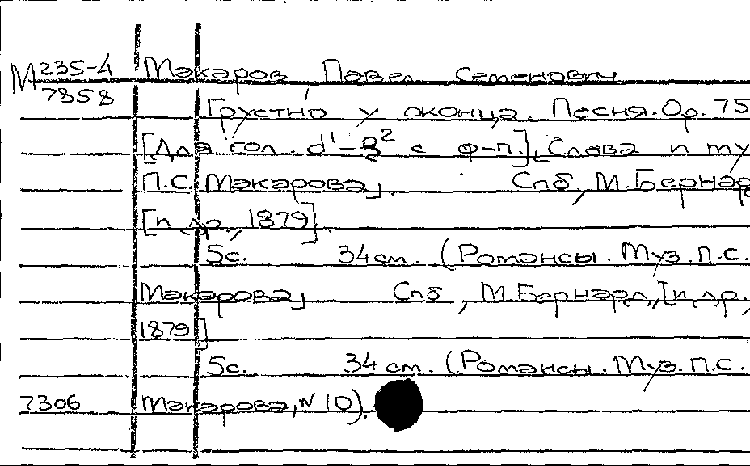 М 235-4 Макаров Павел Семенович
7858 Грустно у оконца. Песня. Op. 75
[Для гол. d¹-g² с ф-п.], Слова и му
П.С. Макарова]. Спб, М. Бернар
[и др., 1879].
5с. 34 см. (Романсы. Муз. П.С.
Макарова] Спб, М. Бернард, [и др.,
1879]
5с. 34 см. (Романсы. Муз. П.С.
7306 Макарова, N 10).